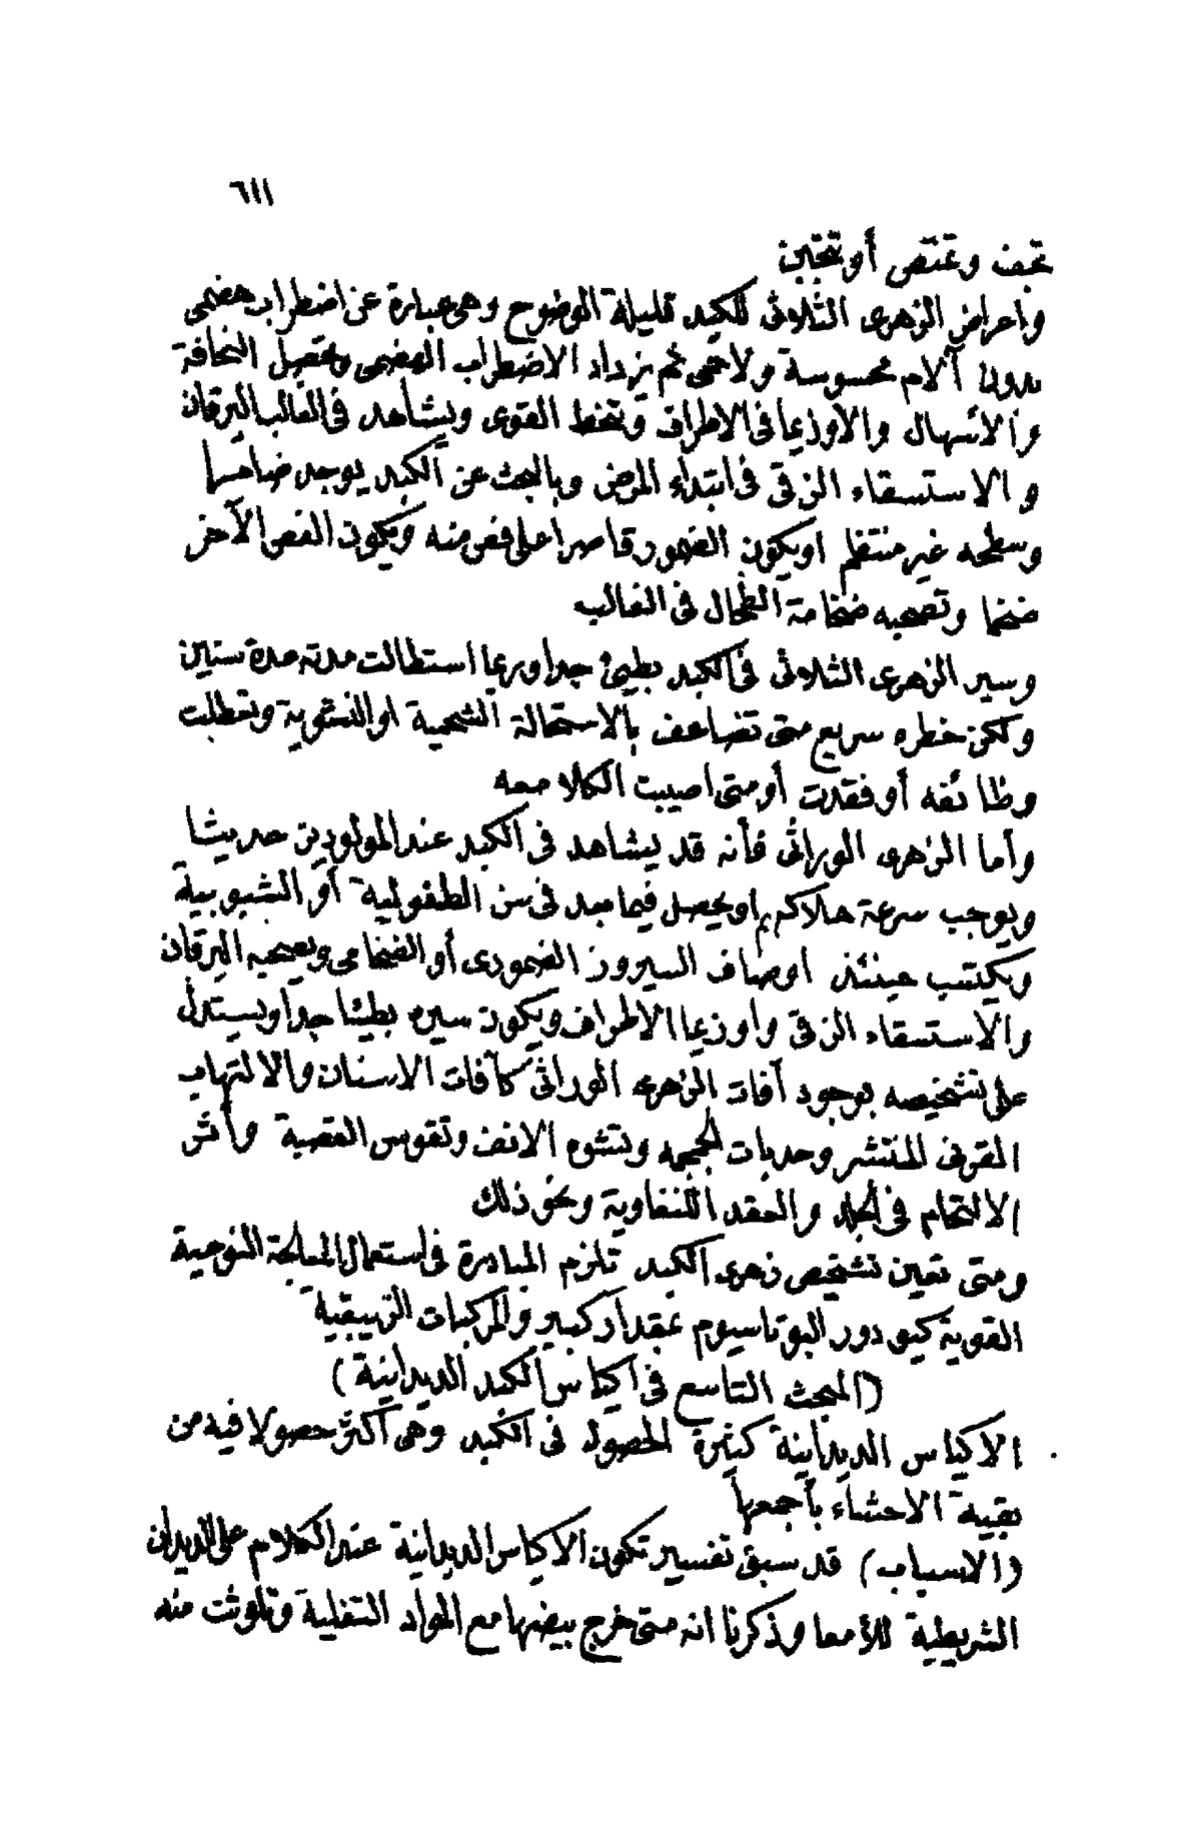 ٦١١
تجف وتمتص أو تتجبن
واعراض الزهرى الثلاثى للكبد قليلة الوضوح وهى عبارة عن اضطراب هضمى
بدون آلام محسوسة ولا حمى ثم يزداد الاضطراب الهضمى وتحصل النحافة
والاسهال والاوذيما فى الاطراف وتنحط القوى ويشاهد فى الغالب اليرقان
والاستسقاء الزقى فى ابتداء المرض وبالبحث عن الكبد يوجد ضامرا
وسطحه غير منتظم او يكون الضمور قاصرا على فص منه ويكون الفص الآخر
ضخما وتصحبه ضخامة الطحال فى الغالب
وسير الزهرى الثلاثى فى الكبد بطيئ جدا وربما استطالت مدته مدة سنتين
ولكن خطره سريع متى تضاعف بالاستحالة الشحمية او النشوية وتعطلت
وظائفه أو فقدت أو متى اصيبت الكلا معه
وأما الزهرى الوراثى فأنه قد يشاهد فى الكبد عند المولودين حديثا
ويوجب سرعة هلاكهم او يحصل فيما بعد فى سن الطفولية أو الشبوبية
ويكتسب حينئذ اوصاف السيروز الضمورى أو الضخامى ويصحبه اليرقان
والاستسقاء الزقى وأوزيما الاطراف ويكون سيره بطيئا جدا ويستدل
على تشخيصه بوجود آفات الزهرى الوراثى كآفات الاسنان والالتهاب
القرنى المنتشر وحدبات الجمجمه وتشوه الانف وتقوس القصبة وأثر
الالتحام فى الجلد والعقد اللنفاوية ونحو ذلك
ومتى تعين تشخيص زهرى الكبد تلزم المبادرة فى استعمال المعالجة النوعية
القوية كيودور البوتاسيوم بمقدار كبير والمركبات الزيبقية
(المبحث التاسع فى اكياس الكبد الديدانية)
الاكياس الديدانية كثيرة الحصول فى الكبد وهى أكثر حصولا فيه من
بقية الاحشاء بأجمعها
(الاسباب) قد سبق تفسير تكون الاكياس الديدانية عند الكلام على الديدان
الشريطية للأمعا وذكرنا انه متى خرج بيضها مع المواد التفلية وتلوثت منه